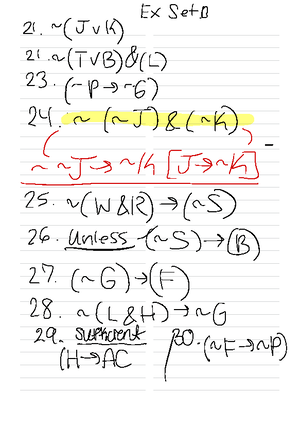 Ex Set B
21. ~(J v K)
21. ~(T v B) & (L)
23. (~P → ~G)
24. ~ (~J) & (~K)
~ ~J → ~K [J → ~K]
25. ~(W & R) → (~S)
26. Unless (~S) → (B)
27. (~G) → (F)
28. ~(L & H) → ~G
29. Sufficient
(H → AC
30. (~F → ~P)